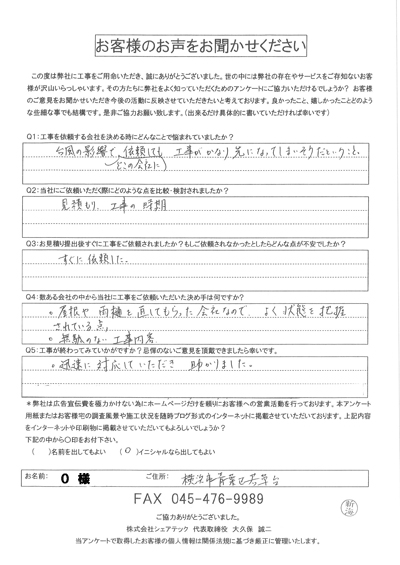 お客様のお声をお聞かせください
この度は弊社に工事をご用命いただき、誠にありがとうございました。世の中には弊社の存在やサービスをご存知ないお客
様が沢山いらっしゃいます。その方たちに弊社をよく知っていただくためのアンケートにご協力いただけるでしょうか? お客
様のご意見をお聞かせいただき今後の活動に反映させていただきたいと考えております。良かったこと、嬉しかったことどのよう
な些細な事でも結構です。是非ご協力お願い致します。(出来るだけ具体的に書いていただければ幸いです)
Q1:工事を依頼する会社を決める時にどんなことで悩まれていましたか?
台風の影響で、依頼しても 工事がかなり先になってしまいそうだということ。
(どこの会社に)
Q2:当社にご依頼いただく際にどのような点を比較・検討されましたか?
見積もり、工事の時期
Q3:お見積り提出後すぐに工事をご依頼されましたか?もしご依頼されなかったとしたらどんな点が不安でしたか?
すぐに依頼した。
Q4:数ある会社の中から当社に工事をご依頼いただいた決め手は何ですか?
○屋根や雨樋を直してもらった会社なので よく状態を把握
されている点。
○無駄のない工事内容
Q5:工事が終わってみていかがですか?忌憚のないご意見を頂戴できましたら幸いです。
○迅速に対応していただき 助かりました。
*弊社は広告宣伝費を極力かけない為にホームページだけを頼りにお客様への営業活動を行っております。本アンケート
用紙またはお客様宅の調査風景や施工状況を随時ブログ形式のインターネットに掲載させていただいております。上記内容
をインターネットや印刷物に掲載させていただいてもよろしいでしょうか?
下記の中から○印をお付下さい。
( )名前を出してもよい (○)イニシャルなら出してもよい
お名前: O 様 ご住所: 横浜市青葉区若草台
FAX 045-476-9989
ご協力ありがとうございました。
株式会社シェアテック 代表取締役 大久保 誠二
当アンケートで取得したお客様の個人情報は関係法規に基づき厳正に管理いたします。